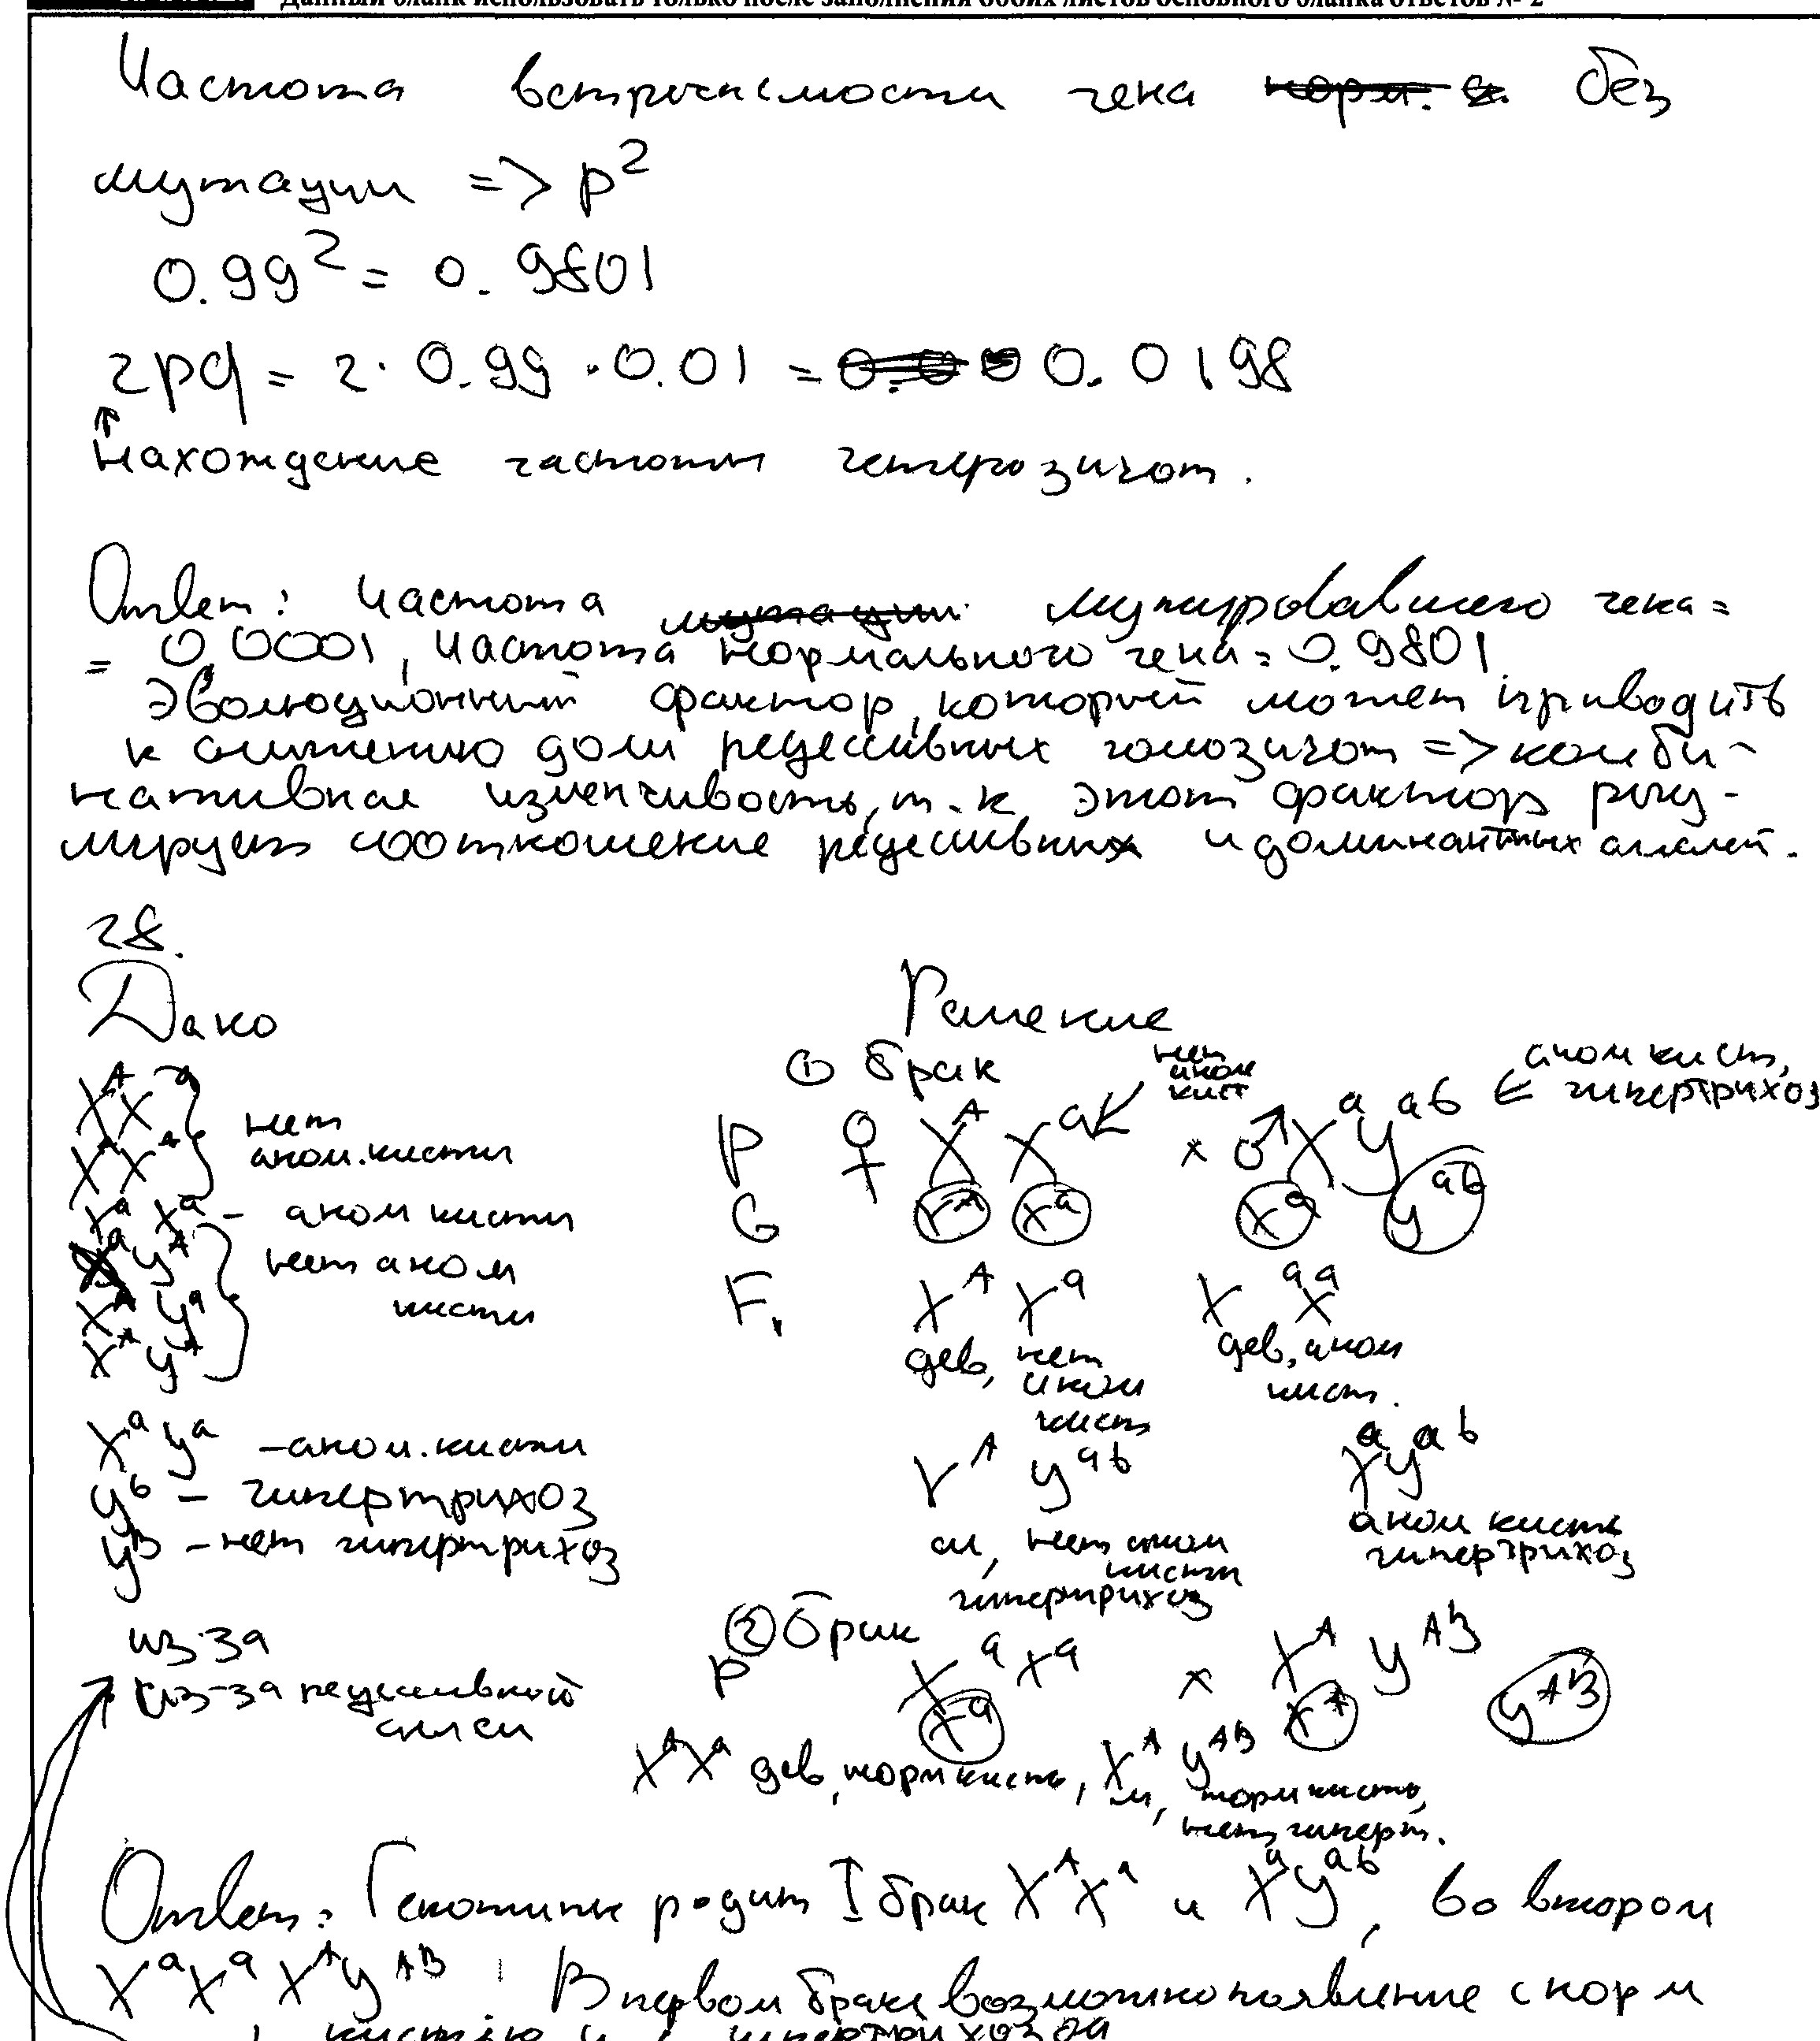 Данный бланк использовать только после заполнения обоих листов основного бланка ответов № 2
Частота встречаемости гена норм. без
мутации => p²
0.99² = 0.9801
2pq = 2 · 0.99 · 0.01 = 0.0198
↑
нахождение частоты гетерозигот.
Ответ: Частота мутации мутировавшего гена =
= 0,0001, Частота нормального гена = 0.9801
Эволюционный фактор, который может приводить
к снижению доли рецессивных гомозигот => комби-
нативная изменчивость, т.к этот фактор регу-
лирует соотношение рецессивных и доминантных аллелей.
28.
Дано Решение
X^A X^a
X^A X^A } нет аном. кисти
X^a X^a - аном кисти
X^a Y^A
X^A Y^a
X^A Y^A } нет аном кисти
X^a Y^a - аном. кисти
Y^b - гипертрихоз
Y^B - нет гипертрихоз
из за
из-за рецессивной
① брак
P ♀ X^A X^a ← нет аном кист × ♂ X^a Y^ab ← аном кист, гипертрихоз
G X^A X^a X^a Y^ab
F₁ X^A X^a X^a X^a
дев, нет аном кист дев, аном кист.
X^A Y^ab X^a Y^ab
нет аном кисти гипертрихоз аном кисть гипертрихоз
② брак
P X^a X^a × X^A Y^AB
X^a X^A Y^AB
X^A X^a дев, норм кисть, X^A Y^AB м, норм кисть,
нет гиперт.
Ответ: Генотипы родит I брак X^A X^a и X^a Y^ab, во втором
X^a X^a X^A Y^AB. В первом браке возможно появление с норм
кистью и с гипертрихоза